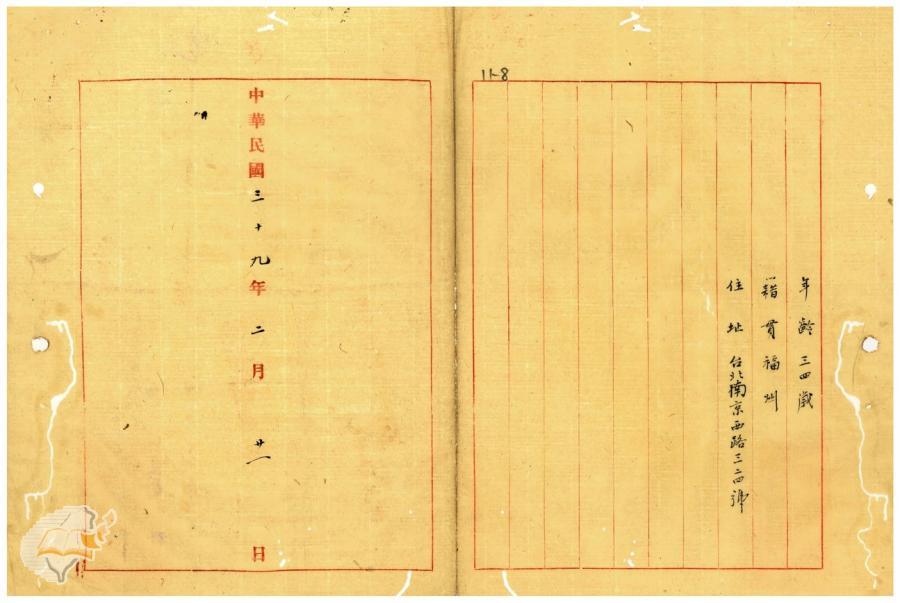 11-8
年齡 三四歲
籍貫 福州
住址 台北南京西路三二四號
中華民國三十九年二月廿一日